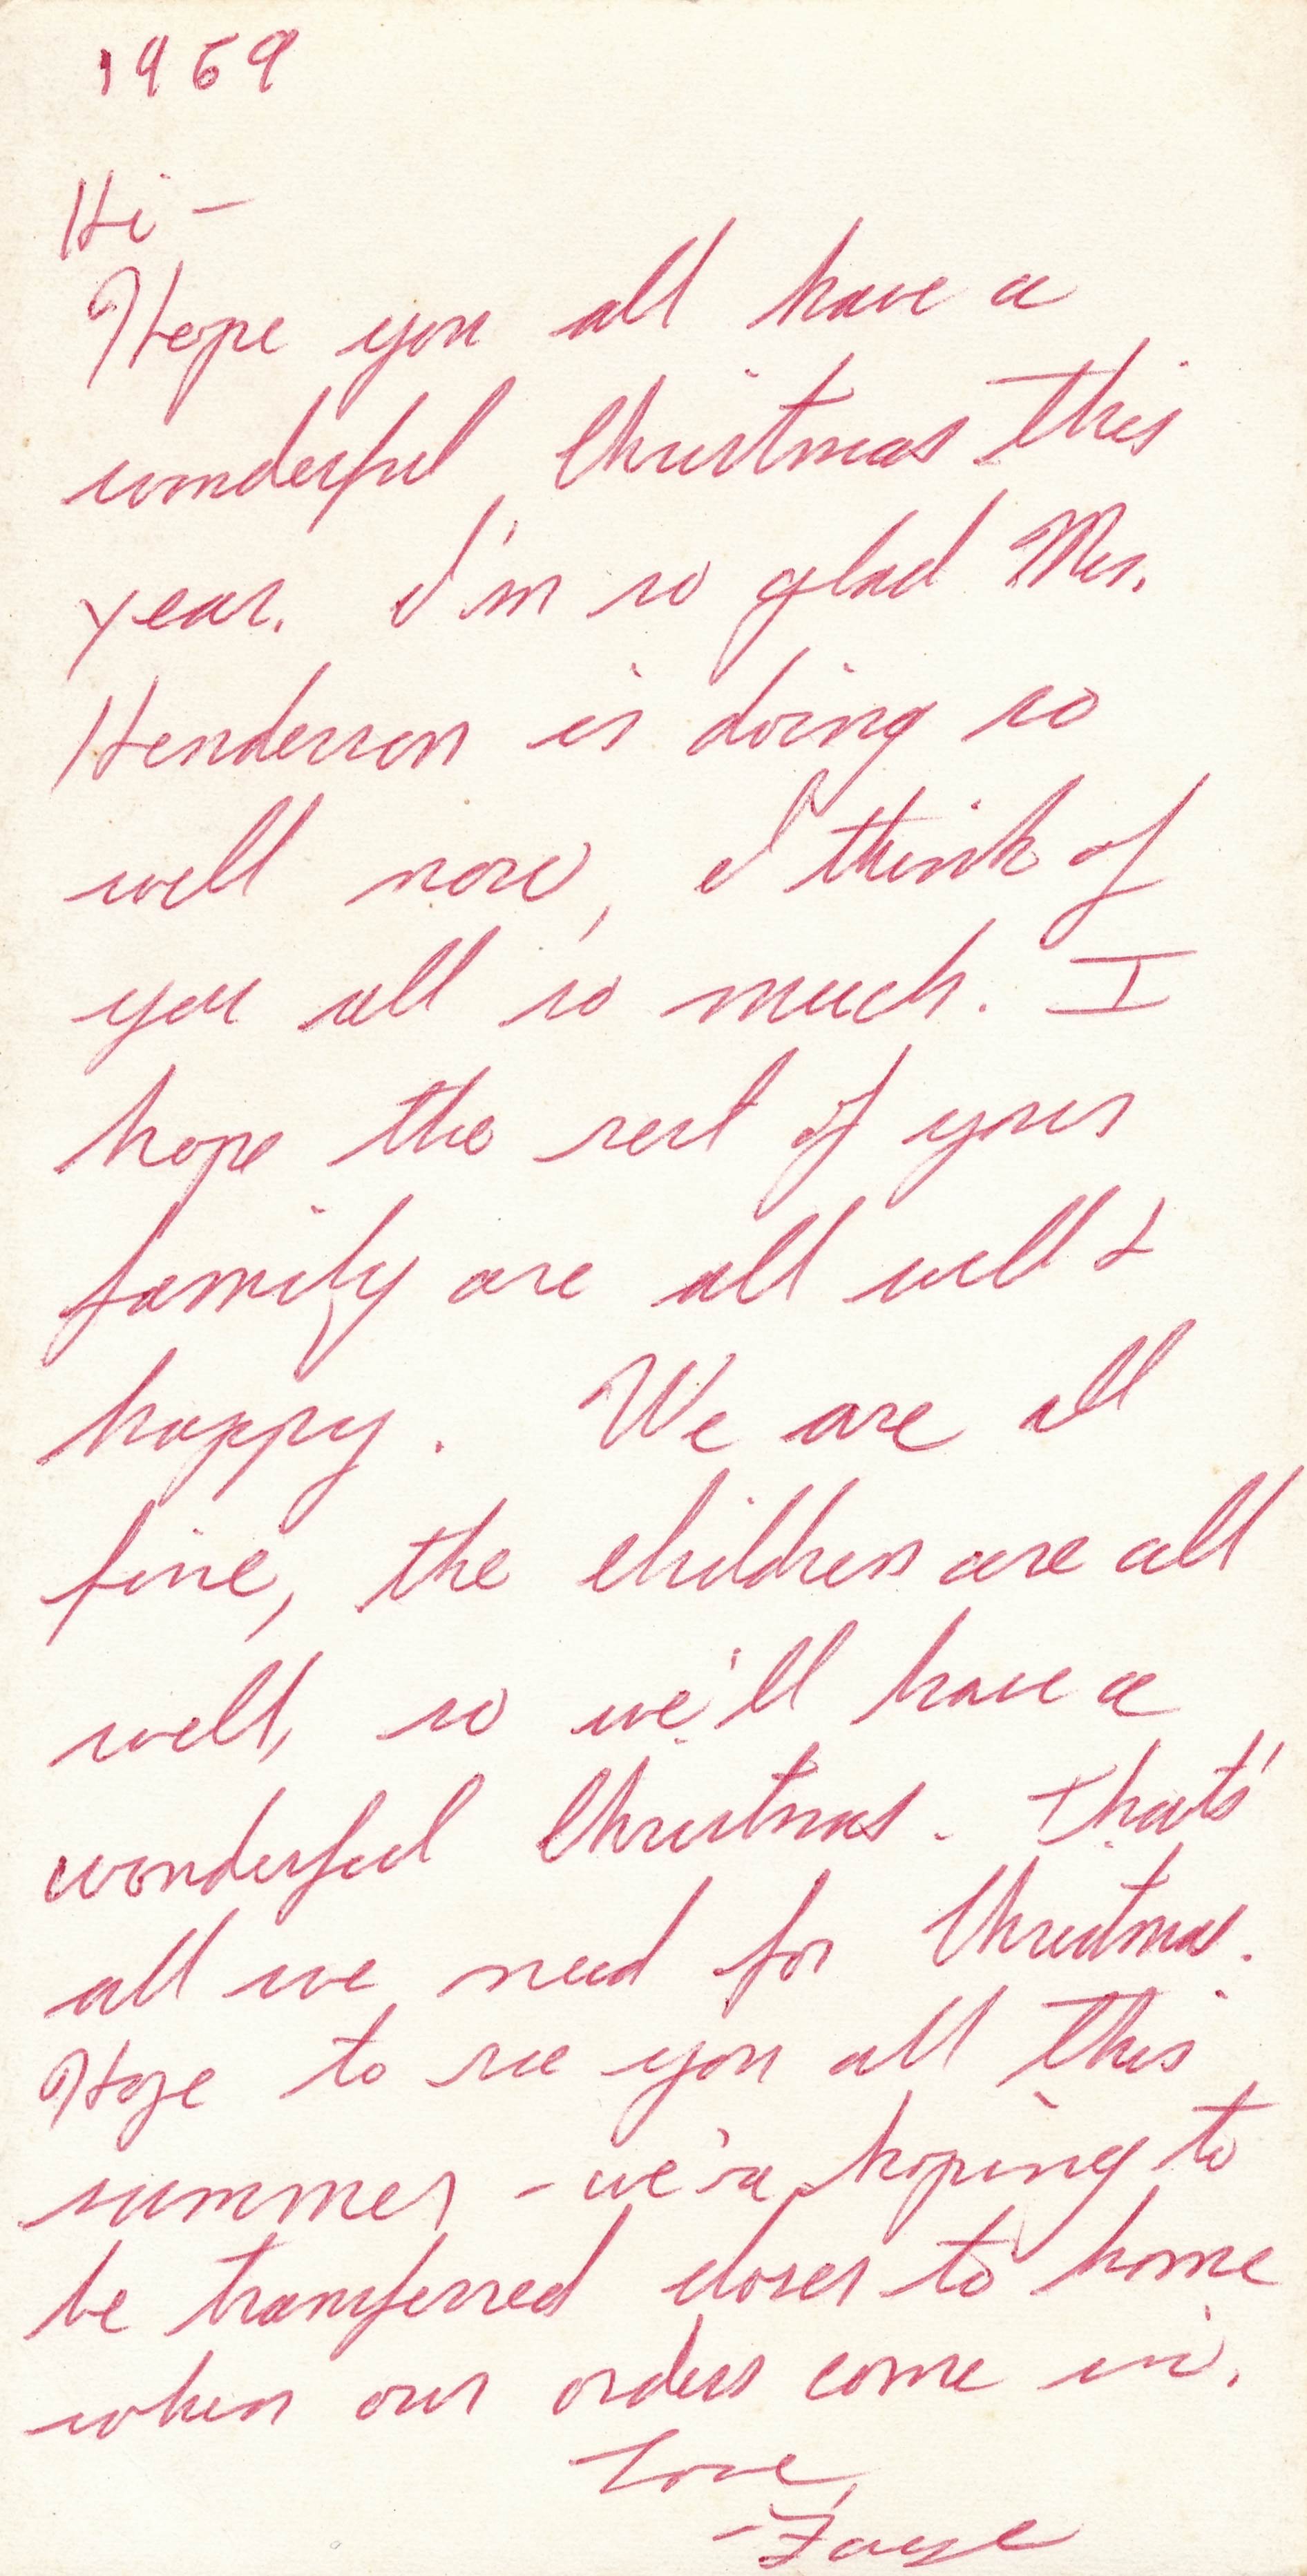 1969
Hi -
Hope you all have a
wonderful Christmas this
year. I'm so glad Mrs.
Henderson is doing so
well now, I think of
you all so much. I
hope the rest of your
family are all well &
happy. We are all
fine, the children are all
well, so we'll have a
wonderful Christmas. That's
all we need for Christmas.
Hope to see you all this
summer - we're hoping to
be transferred closer to home
when our orders come in.
Love,
- Faye